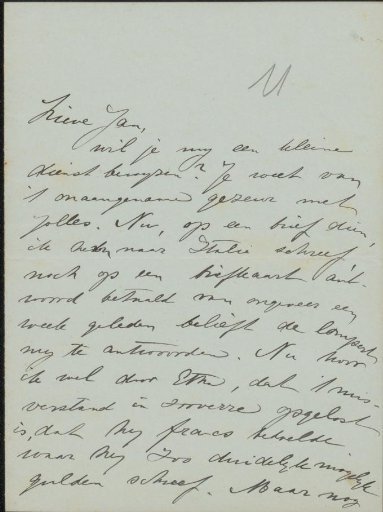 11
Lieve Jan,
wil je my een kleine
dienst bewyzen? Je weet van
't onaangename gezeur met
Jolles. Nu, op een brief dien
ik hem naar Italië schreef,
noch op een briefkaart ant-
woord betaald van ongeveer een
week geleden belieft de
my te antwoorden. Nu hoor
ik wel door Etha, dat 't mis-
verstand in zooverre opgelost
is, dat hy francs bedoelde
waar hy zoo duidelyk mogelyk
gulden schreef. Maar nog